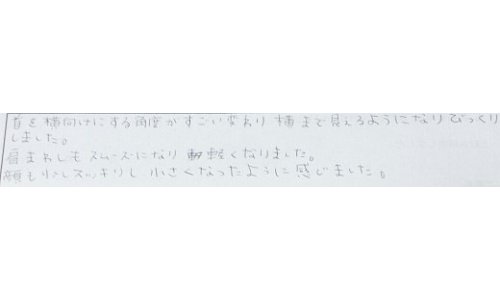 首を横向けにする角度がすごい変わり 横まで見えるようになりびっくり
しました。
肩まわしもスムーズになり 軽くなりました。
顔も少しスッキリし 小さくなったように感じました。